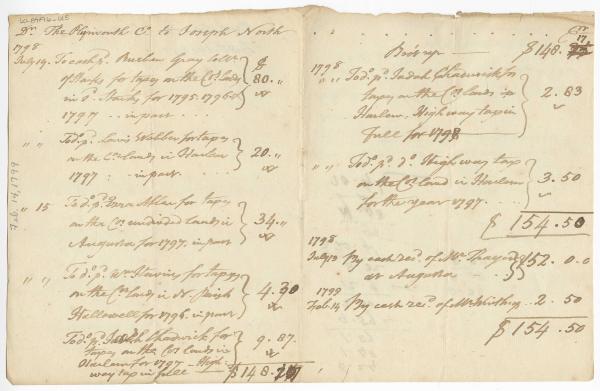 Dr. The Plymouth Co. to Joseph North
1798
July 14. To cash pd. Reuben Gray
of Starks for taxes on the Co. Lands
in for 1795. 1796 &
1797 .. in part
$ 80. "
" " To do. pd. Lewis Webber for taxes
on the Co. Lands in Harlem
1797 .. in part
20. "
" 15 To do. pd. Ezra for taxes
on the Co. undivided Lands in
Augusta for 1797. in part
34. "
" " To do. pd. Wm. for taxes
on the Co. Lands in N. Parish
Hallowell for 1796 in part
4.30
To do. pd. Judah Chadwick for
taxes on the Co. Lands in
Harlem for 1797 — High-
way tax in full —
9.87.
$148.
Bro't up — $148. 17
1798
" " To do. pd. Judah Chadwick for
taxes on the Co. Lands in
Harlem. High way tax in
full — for 1798
2.83
To do. pd. do. High way tax
on the Co. Land in Harlem
for the year 1797
3.50
$ 154.50
1798
July 13 By cash recd. of Mr. Thayer
at Augusta
152.0.0
1799
Feb. 14 By cash recd. of Mr. Winthrop 2.50
$154.50
Feb. 14, 1799